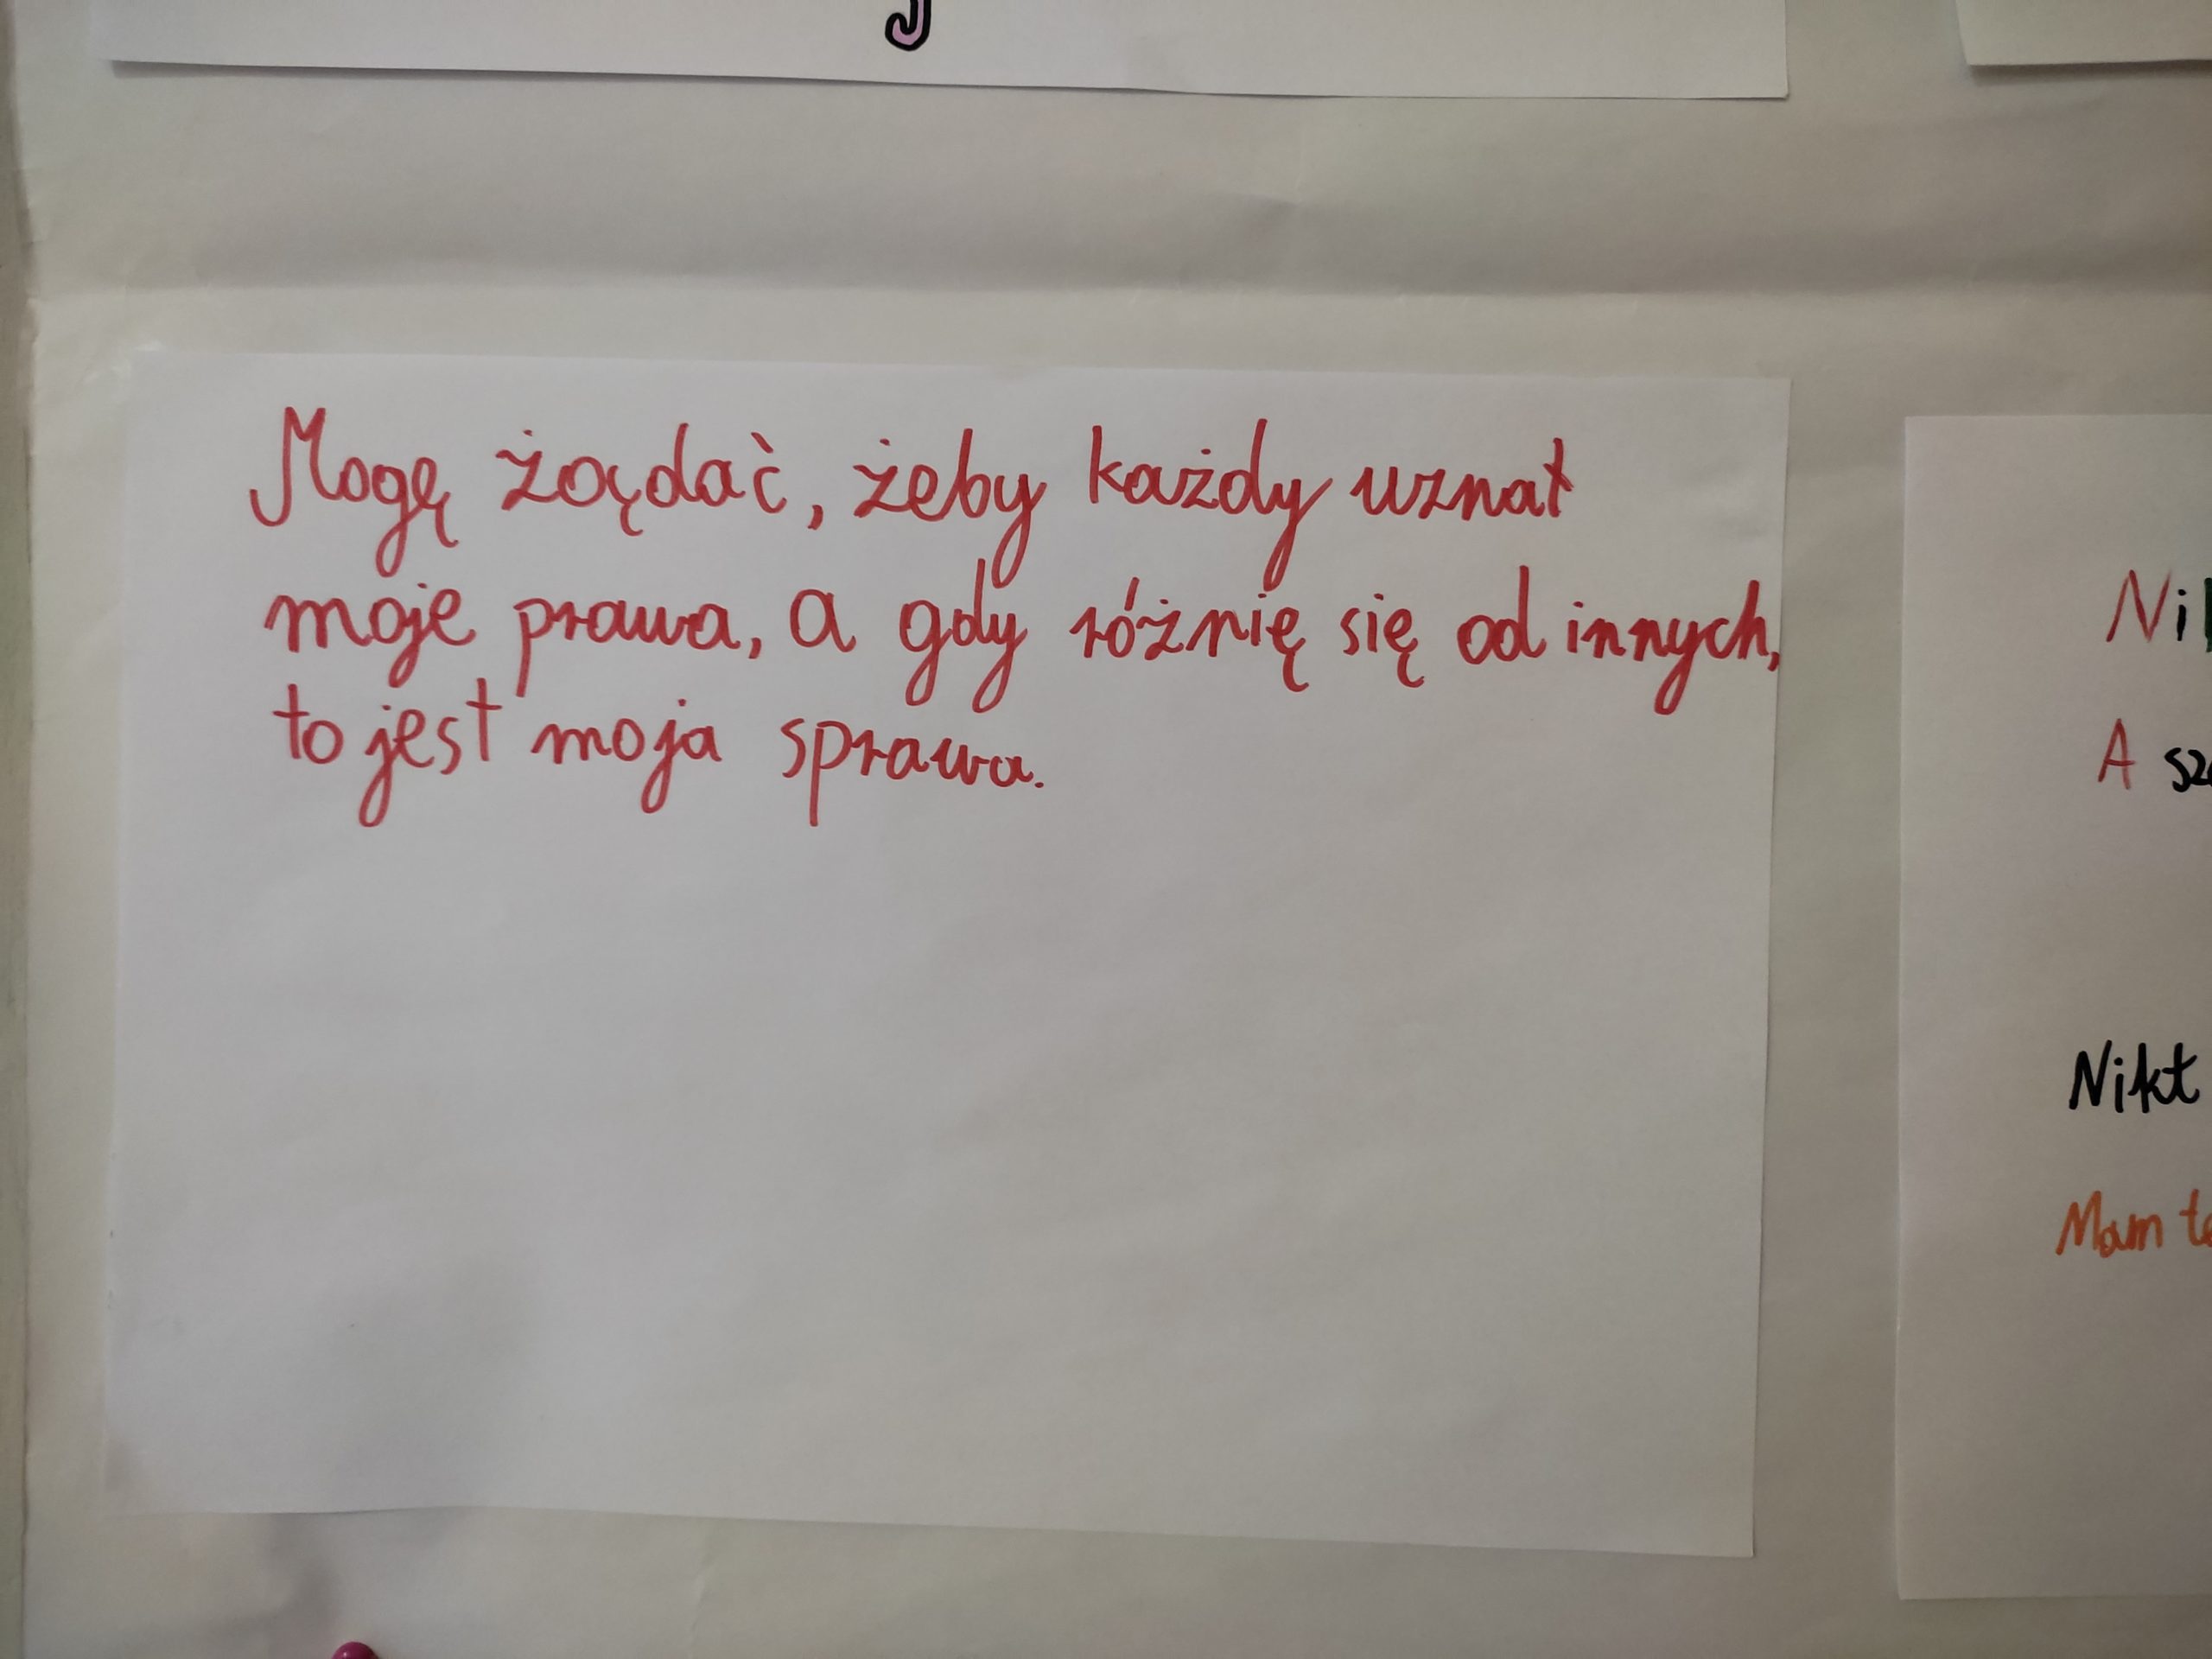 Mogę żądać, żeby każdy uznał
moje prawa, a gdy różnię się od innych,
to jest moja sprawa.
A
Nikt
Mam